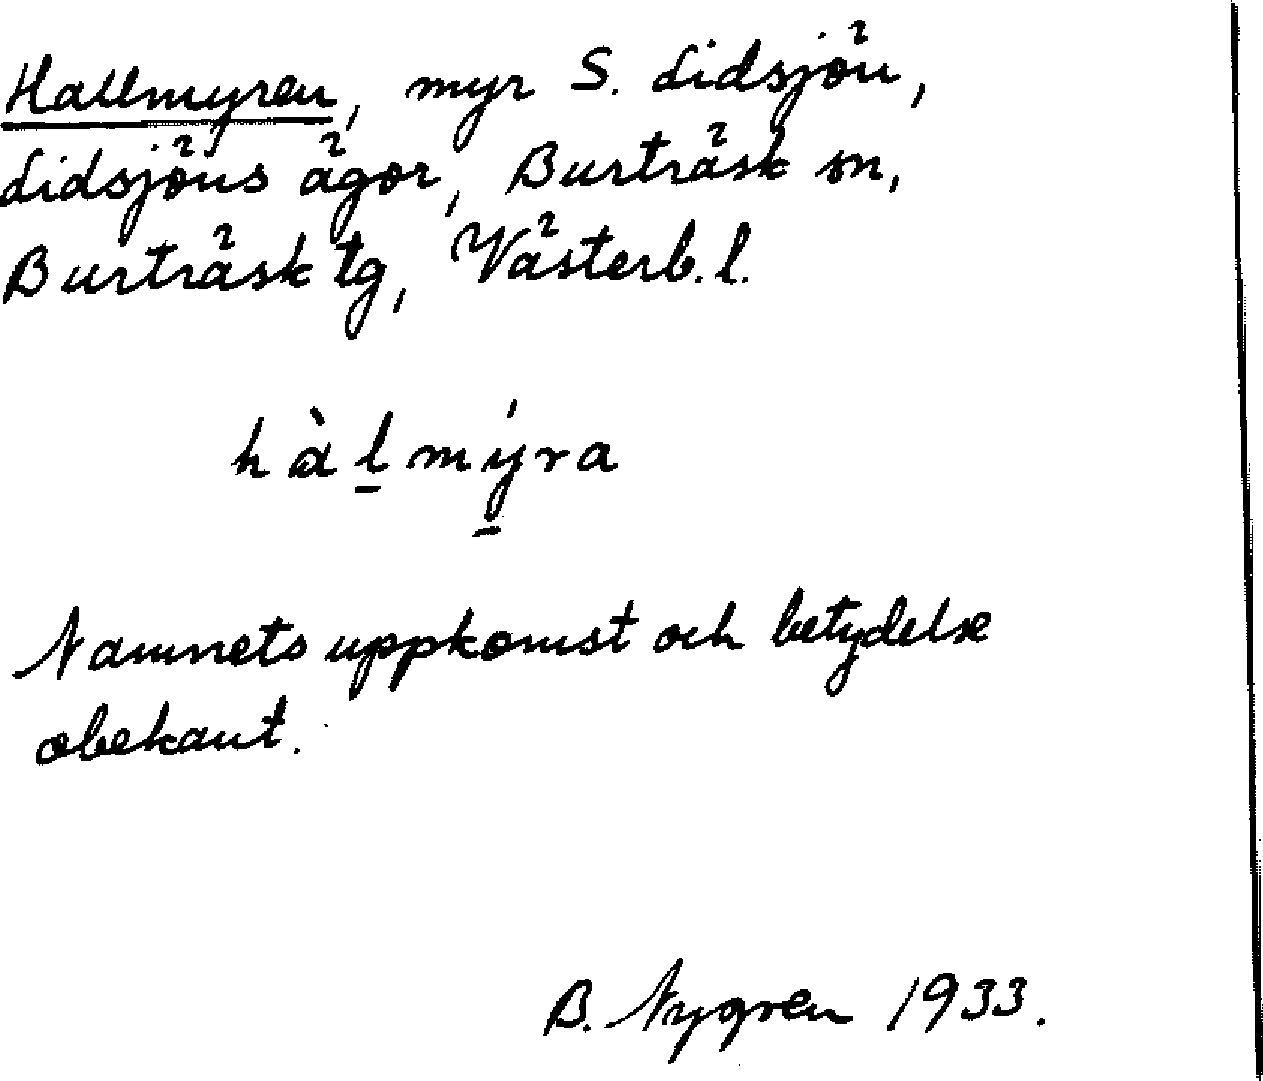 Hallmyren, myr S. Lidsjön,
Lidsjöns ägor, Burträsk sn,
Burträsk tg, Västerb. l.
hàl̲mý̲ra
Namnets uppkomst och betydelse
obekant.
B. Nygren 1933.